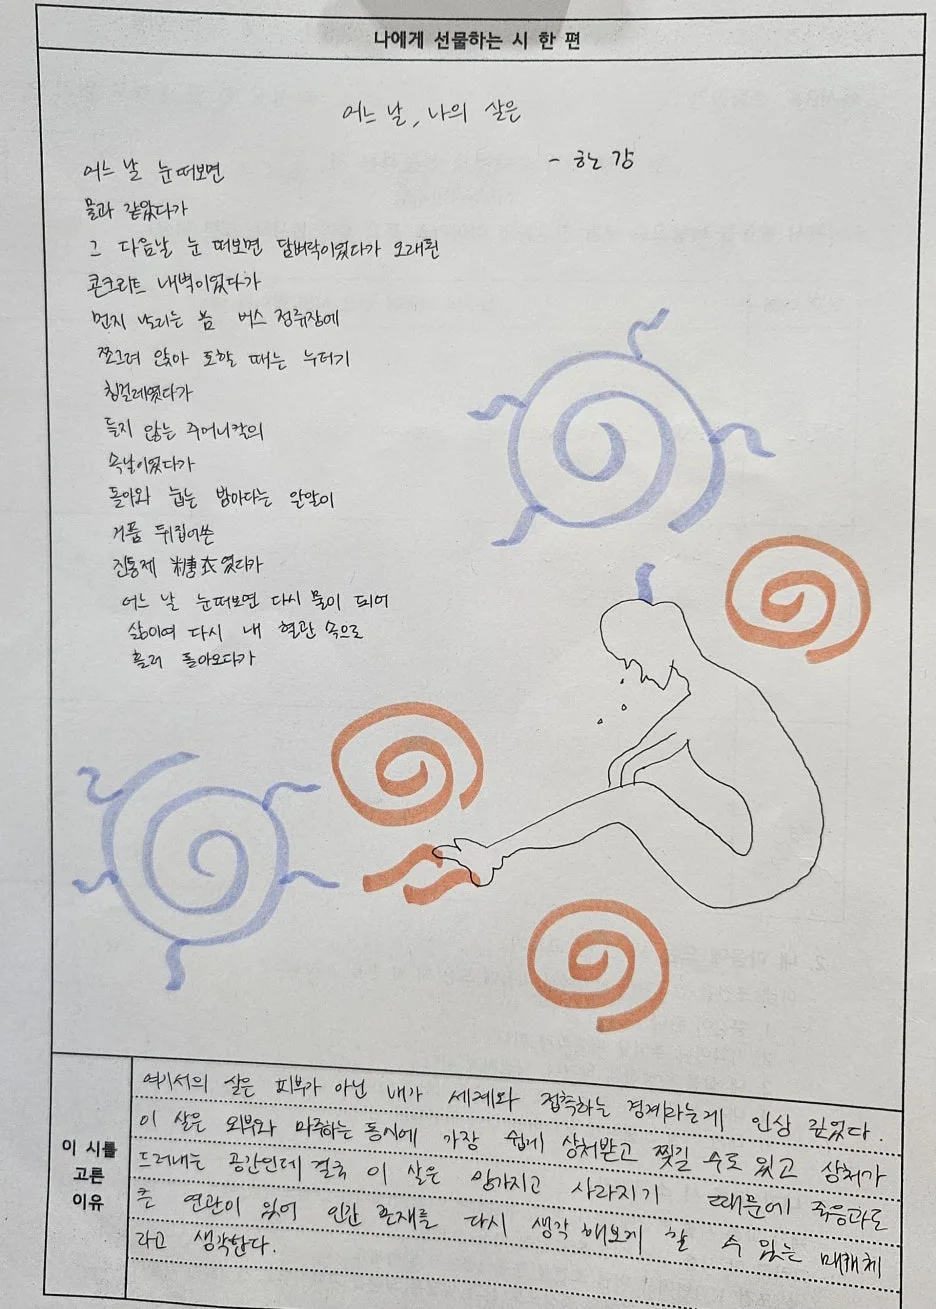 나에게 선물하는 시 한 편
어느 날, 나의 살은
- 한강
어느 날 눈떠보면
물과 같았다가
그 다음날 눈 떠보면 담벼락이었다가 오래된
콘크리트 내벽이었다가
먼지 날리는 봄 버스 정류장에
쪼그려 앉아 토할 때는 누더기
침걸레였다가
들지 않는 주머니칼의
속날이었다가
돌아와 눕는 밤마다는 알알이
거품 뒤집어쓴
진통제 糖衣였다가
어느 날 눈떠보면 다시 물이 되어
삶이여 다시 내 혈관 속으로
흘러 돌아오다가
이 시를
고른
이유
여기서의 살은 피부가 아닌 내가 세계와 접촉하는 경계라는게 인상 깊었다.
이 살은 외부와 마주하는 동시에 가장 쉽게 상처받고 찢길 수도 있고 상처가
드러내는 공간인데 결국 이 살은 망가지고 사라지기 때문에 죽음과도
큰 연관이 있어 인간 존재를 다시 생각 해보게 할 수 있는 매개체
라고 생각한다.